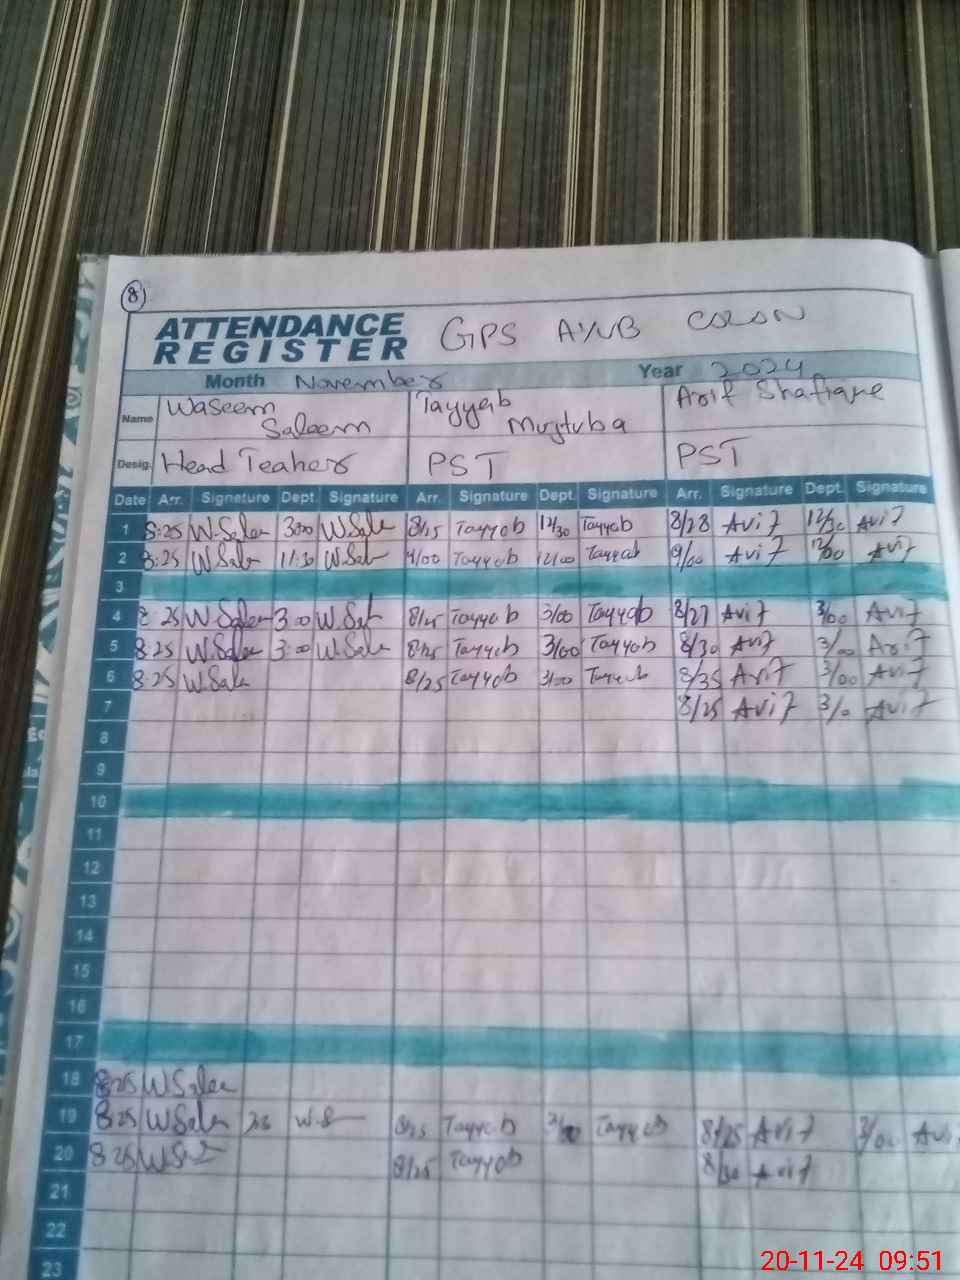 8
ATTENDANCE REGISTER GPS AYUB COLON
Month November Year 2024
Name Waseem Saleem Tayyab Mujtuba Arif Shafique
Desig. Head Teaher PST PST
Date Arr. Signature Dept. Signature Arr. Signature Dept. Signature Arr. Signature Dept. Signature
1 8:25 W.Salem 3:00 W.Sale 8/25 Tayyab 12/30 Tayyab 8/28 Arif 12/30 Arif
2 8:25 W.Sale 11:30 W.Sal 9/00 Tayyab 12/00 Tayyab 9/00 Arif 12/00 Arif
3
4 8:25 W.Salem 3:00 W.Sal 8/25 Tayyab 3/00 Tayyab 8/27 Arif 3/00 Arif
5 8:25 W.Salem 3:00 W.Sale 8/25 Tayyab 3/00 Tayyab 8/30 Arif 3/00 Arif
6 8:25 W.Sale 8/25 Tayyab 3/00 Tayyab 8/35 Arif 3/00 Arif
7 8/25 Arif 3/0 Arif
8
9
10
11
12
13
14
15
16
17
18 8:25 W Salem
19 8:25 W Sale W.S 8/25 Tayyab Tayyab 8/25 Arif 3/00 Arif
20 8 25 8/25 Tayyab 8/30 Arif
21
22
23
20-11-24 09:51